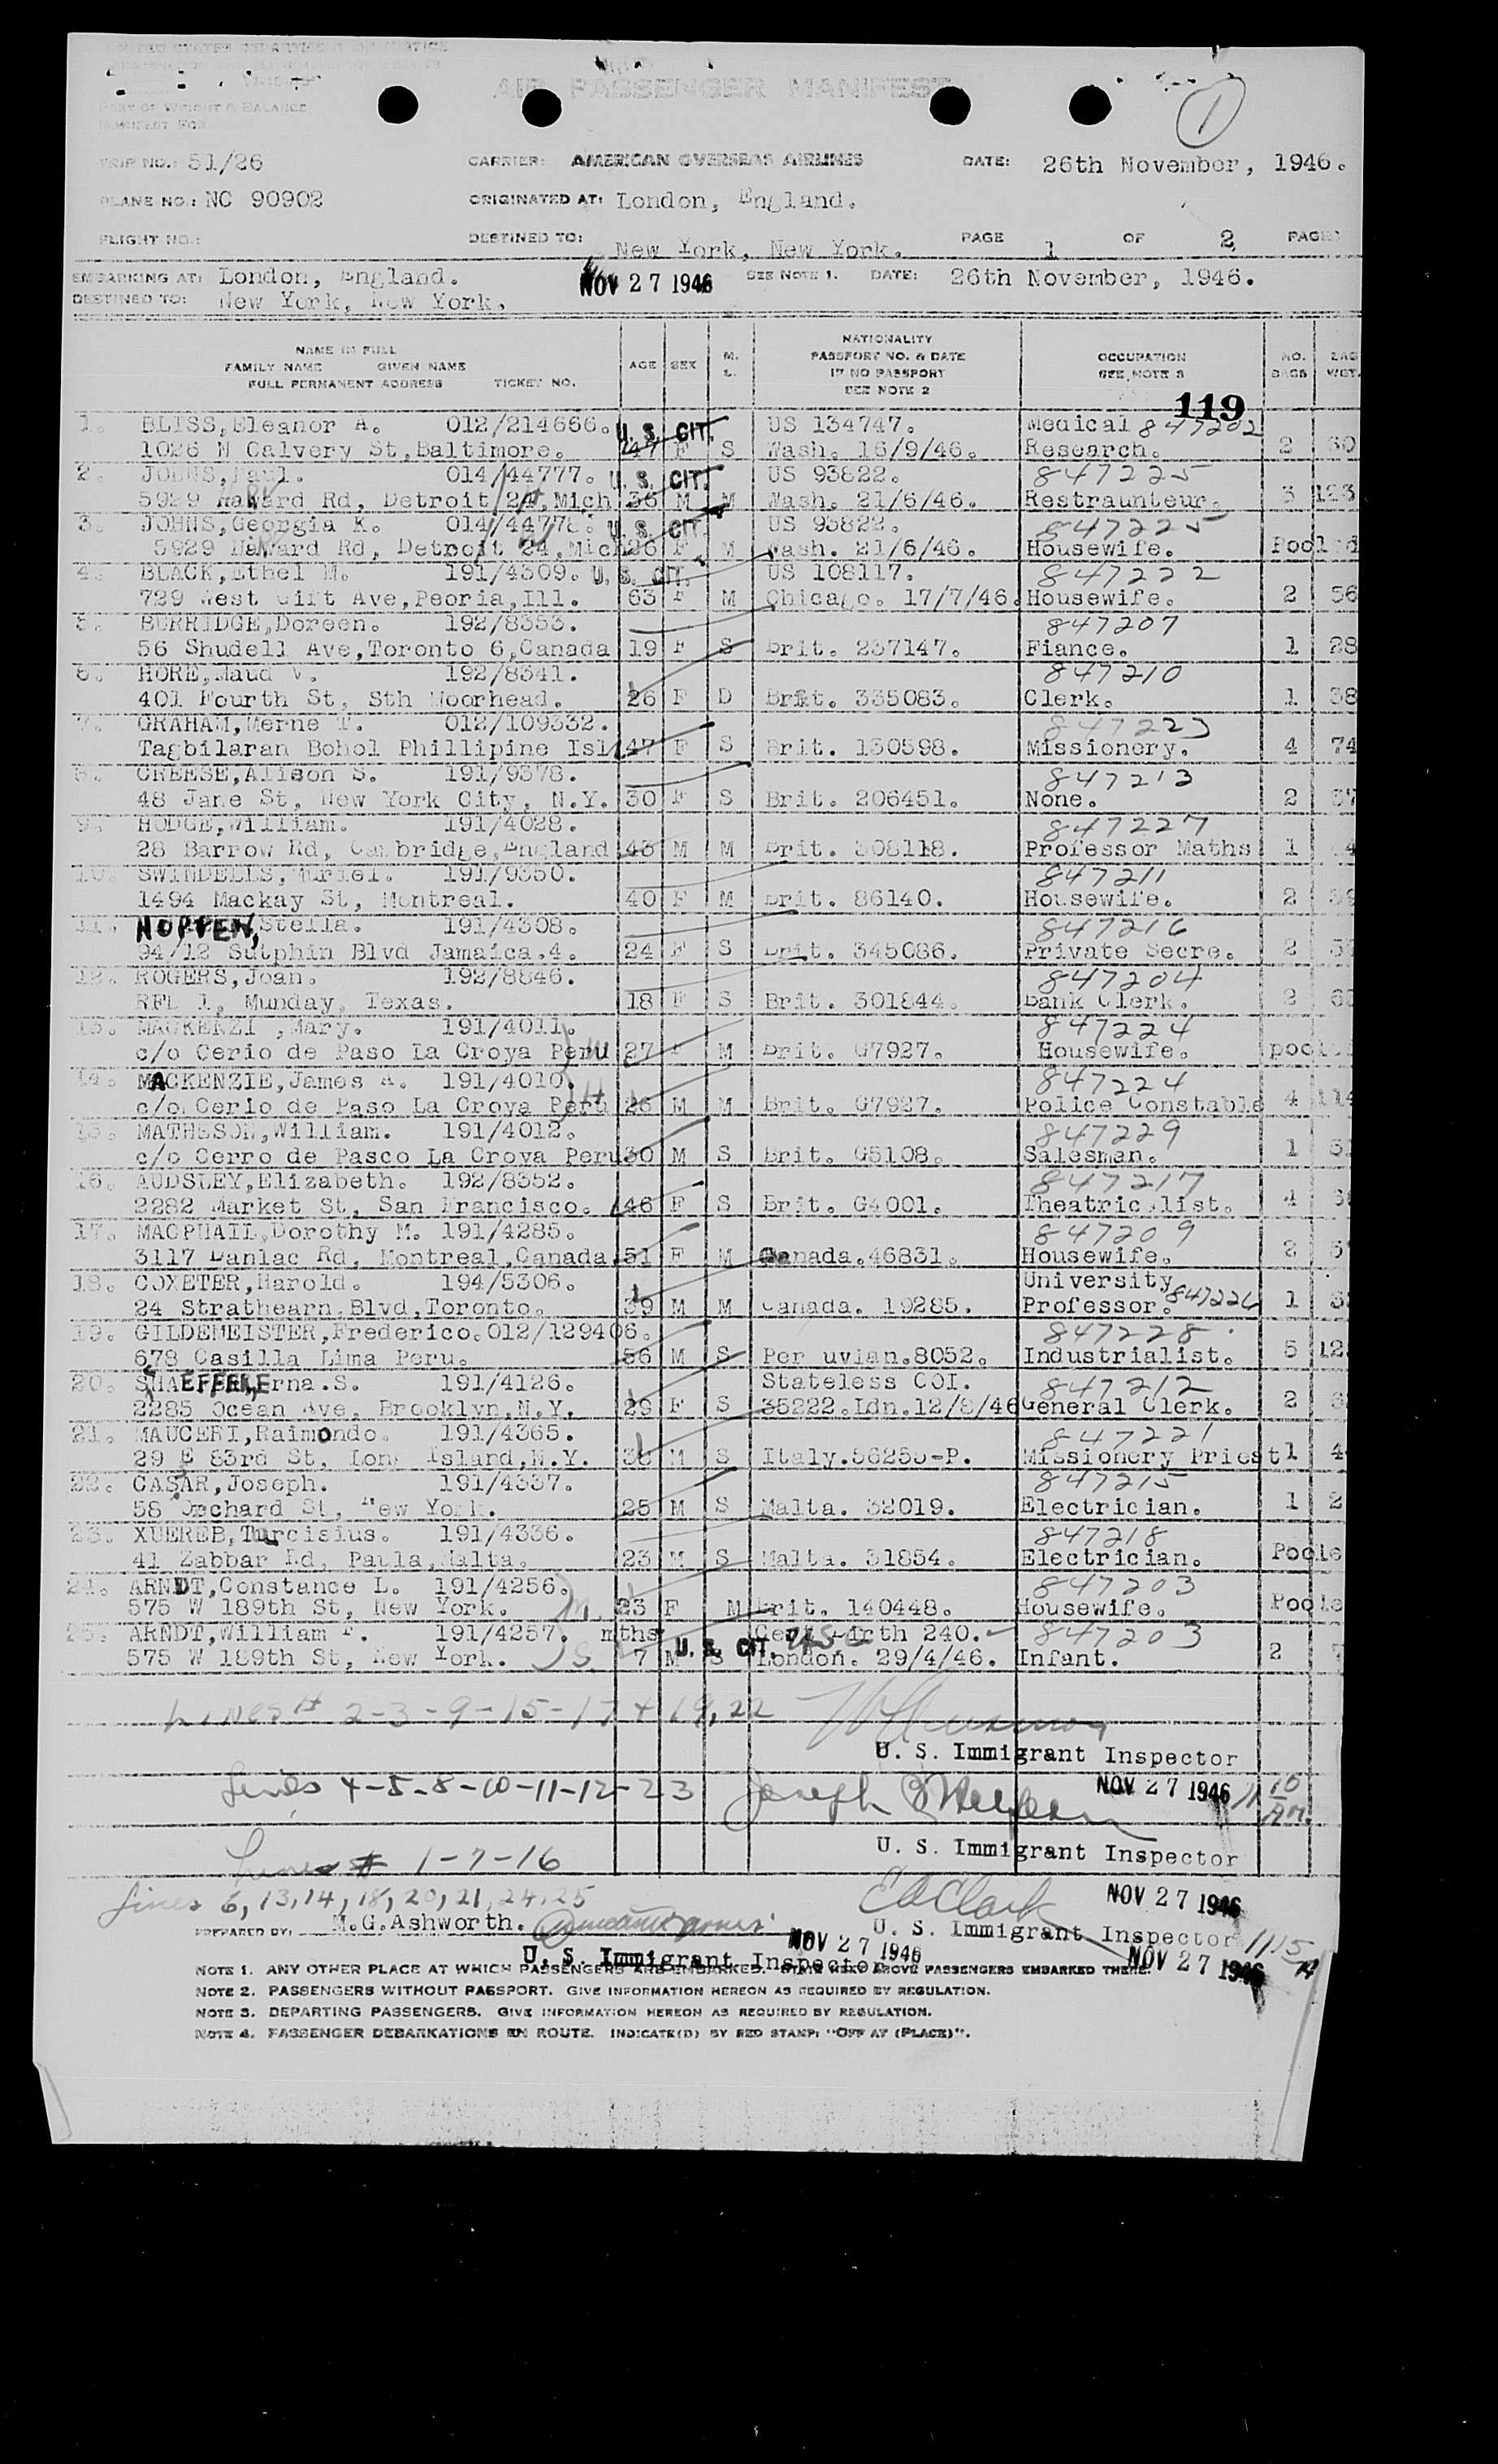 UNITED STATES DEPARTMENT OF JUSTICE
AIR PASSENGER MANIFEST
PART OF WEIGHT & BALANCE
MANIFEST FOR
1
TRIP NO.: 51/26 CARRIER: AMERICAN OVERSEAS AIRLINES DATE: 26th November, 1946.
PLANE NO.: NC 90902 ORIGINATED AT: London, England.
FLIGHT NO.: DESTINED TO: New York, New York. PAGE 1 OF 2 PAGES
EMBARKING AT: London, England. NOV 27 1946 SEE NOTE 1. DATE: 26th November, 1946.
DESTINED TO: New York, New York.
NAME IN FULL
FAMILY NAME GIVEN NAME
FULL PERMANENT ADDRESS TICKET NO. AGE SEX M. S. NATIONALITY PASSPORT NO. & DATE IF NO PASSPORT SEE NOTE 2 OCCUPATION SEE NOTE 3 NO. BAGS BAG WGT.
119
1. BLISS, Eleanor A. 012/214666. U. S. CIT. US 134747. Medical 847202
1026 N Calvery St, Baltimore. 47 F S Wash. 16/9/46. Research. 2 60
2. JOHNS, Paul. 014/44777. U. S. CIT. US 93822. 847225
5929 Rd, Detroit 24, Mich 36 M M Wash. 21/6/46. Restraunteur. 3 123
3. JOHNS, Georgia K. 014/44778. U. S. CIT. US 93822. 847225
5929 Rd, Detroit 24, Mich 26 F M Wash. 21/6/46. Housewife. Pooled
4. BLACK, Ethel M. 191/4309. U. S. CIT. US 108117. 847222
729 West Gift Ave, Peoria, Ill. 63 F M Chicago. 17/7/46. Housewife. 2 56
5. BURRIDGE, Doreen. 192/8353. 847207
56 Shudell Ave, Toronto 6, Canada 19 F S Brit. 237147. Fiance. 1 28
6. HORE, Maud V. 192/8341. 847210
401 Fourth St, Sth Moorhead. 26 F D Brit. 335083. Clerk. 1 38
7. GRAHAM, Merne T. 012/109332. 847223
Tagbilaran Bohol Phillipine Isl 47 F S Brit. 130598. Missionery. 4 74
8. CREESE, Alison S. 191/9378. 847213
48 Jane St, New York City, N.Y. 30 F S Brit. 206451. None. 2 37
9. HODGE, William. 191/4028. 847227
28 Barrow Rd, Cambridge, England 43 M M Brit. 308118. Professor Maths 1
10. SWINDELLS, Muriel. 191/9350. 847211
1494 Mackay St, Montreal. 40 F M Brit. 86140. Housewife. 2
11. NOPPEN, Stella. 191/4308. 847216
94/12 Sutphin Blvd Jamaica.4. 24 F S Brit. 345086. Private Secre. 2
12. ROGERS, Joan. 192/8846. 847204
RFD 1, Munday, Texas. 18 F S Brit. 301844. Bank Clerk. 2
13. MACKENZI , Mary. 191/4011. 847224
c/o Cerio de Paso La Croya Peru 27 F M Brit. G7927. Housewife. poole
14. MACKENZIE, James A. 191/4010. 847224
c/o Cerio de Paso La Croya Peru 26 M M Brit. G7927. Police Constable 4 114
15. MATHESON, William. 191/4012. 847229
c/o Cerro de Pasco La Croya Peru 30 M S Brit. G5108. Salesman. 1
16. AUDSLEY, Elizabeth. 192/8352. 847217
2282 Market St, San Francisco. 46 F S Brit. G4001. Theatric list. 4
17. MACPHAIL, Dorothy M. 191/4285. 847209
3117 Danlac Rd, Montreal, Canada. 51 F M Canada. 46831. Housewife. 2
18. COXETER, Harold. 194/5306. University
24 Strathearn Blvd, Toronto. 39 M M Canada. 19285. Professor. 847226 1
19. GILDEMEISTER, Frederico. 012/129406. 847228
678 Casilla Lima Peru. 56 M S Per uvian. 8052. Industrialist. 5 12
20. SHAEFFER, Erna.S. 191/4126. Stateless COI. 847212
2285 Ocean Ave, Brooklyn, N.Y. 29 F S 35222. Ldn. 12/8/46 General Clerk. 2
21. MAUCERI, Raimondo. 191/4365. 847221
29 E 83rd St, Long Island, N.Y. 36 M S Italy. 56255-P. Missionery Priest 1 4
22. CASAR, Joseph. 191/4337. 847215
58 Orchard St, New York. 25 M S Malta. 32019. Electrician. 1 2
23. XUEREB, Tarcisius. 191/4336. 847218
41 Zabbar Rd, Paula, Malta. 23 M S Malta. 31854. Electrician. Poole
24. ARNDT, Constance L. 191/4256. 847203
575 W 189th St, New York. 23 F M Brit. 140448. Housewife. Poole
25. ARNDT, William F. 191/4257. mths Cert Birth 240. 847203
575 W 189th St, New York. 7 M S U. S. CIT. London. 29/4/46. Infant. 2 7
Lines # 2-3-9-15-17 + 19, 22
U. S. Immigrant Inspector
Lines 4-5-8-10-11-12-23 Joseph NOV 27 1946 11 10 AM.
U. S. Immigrant Inspector
Lines # 1-7-16
Lines 6, 13, 14, 18, 20, 21, 24, 25 E A Clark NOV 27 1946
PREPARED BY: M.G.Ashworth. U. S. Immigrant Inspector 11 15 A
NOV 27 1946 NOV 27 1946
U. S. Immigrant Inspector
NOTE 1. ANY OTHER PLACE AT WHICH PASSENGERS ARE EMBARKED. STATE HERE ABOVE PASSENGERS EMBARKED THERE.
NOTE 2. PASSENGERS WITHOUT PASSPORT. GIVE INFORMATION HEREON AS REQUIRED BY REGULATION.
NOTE 3. DEPARTING PASSENGERS. GIVE INFORMATION HEREON AS REQUIRED BY REGULATION.
NOTE 4. PASSENGER DEBARKATIONS EN ROUTE. INDICATE(D) BY RED STAMP: "OFF AT (PLACE)".